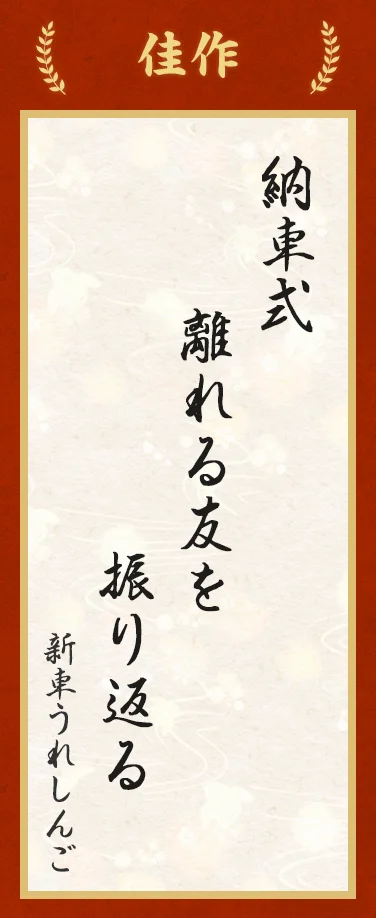 佳作
納車式
離れる友を
振り返る
新車うれしんご